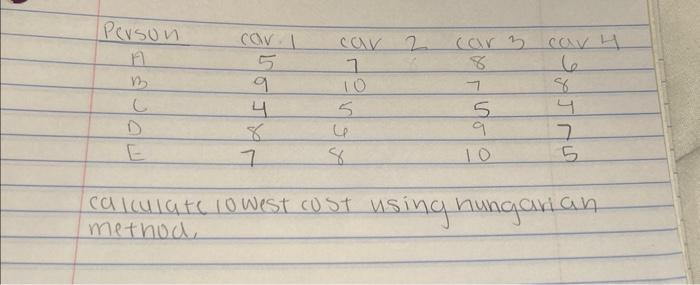 Person car 1 car 2 car 3 car 4
A 5 7 8 6
B 9 10 7 8
C 4 5 5 4
D 8 6 9 7
E 7 8 10 5
calculate lowest cost using hungarian
method.